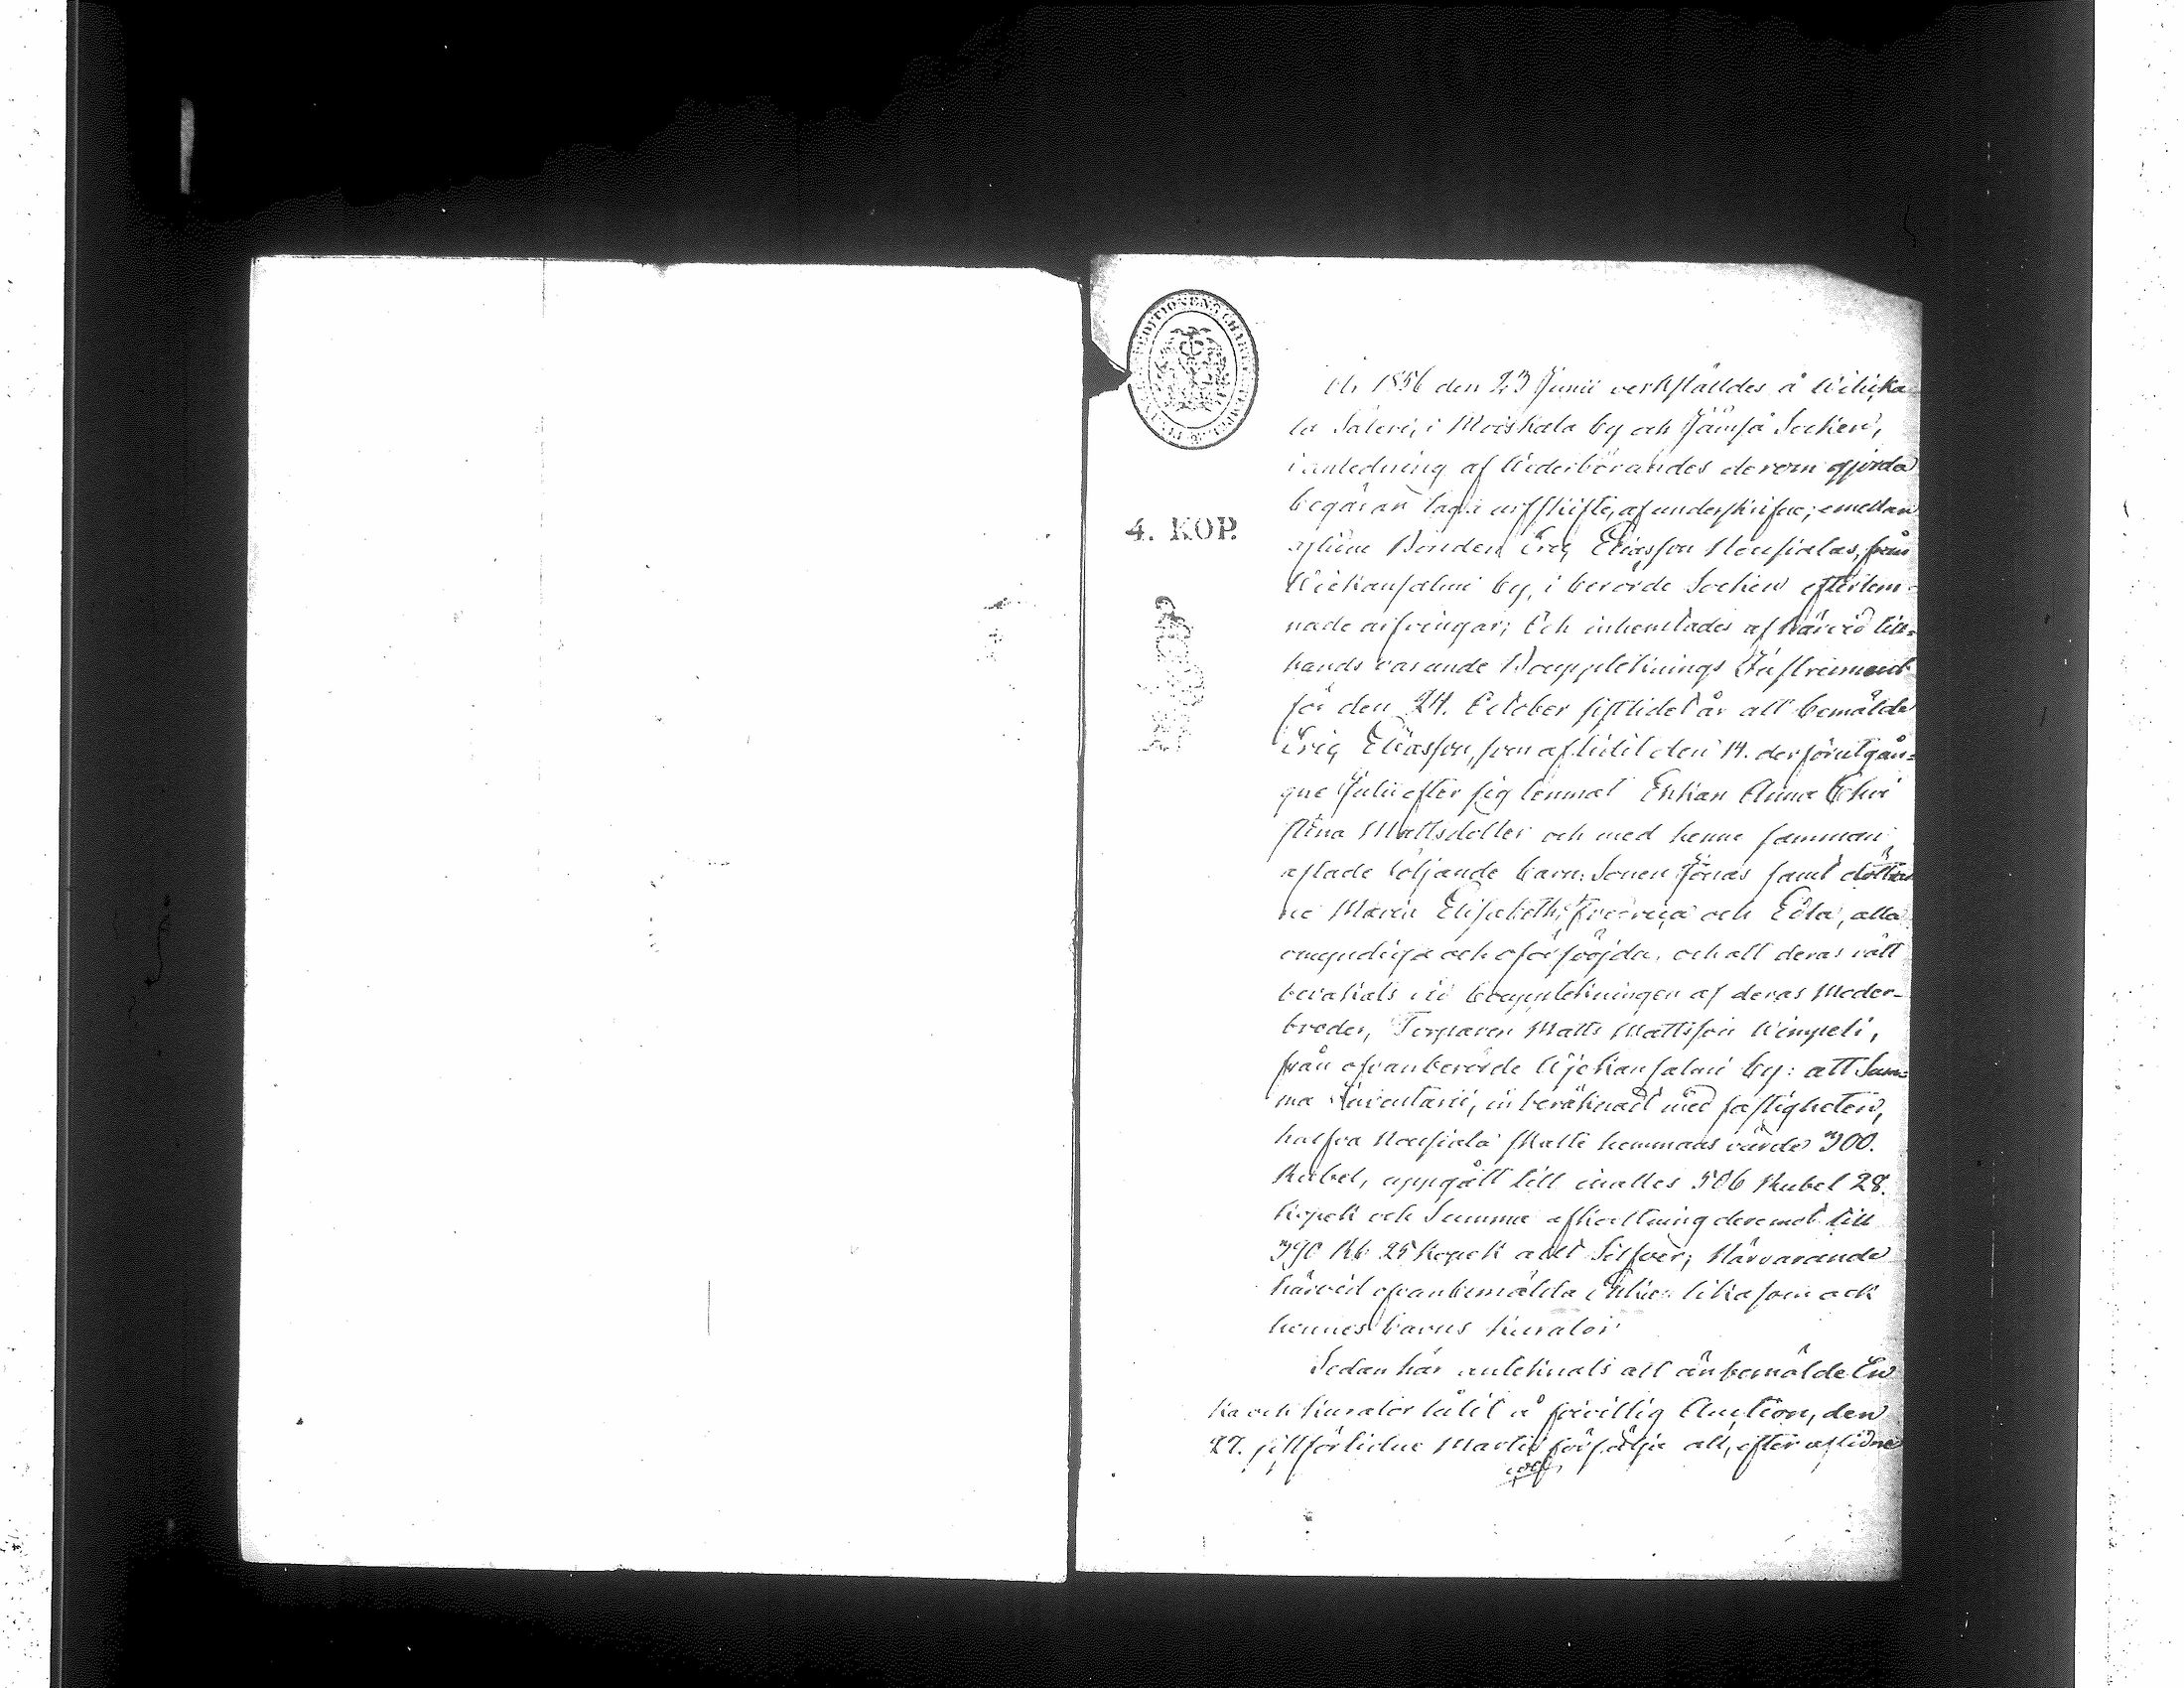 4. KOP.
År 1856 den 23 Junii verkstäldes å Wihika
la Säteri, i Moiskala by och Jämsä Socken,
i anledning af Wederbörandes derom gjorda
begäran laga arfskifte, af underskrifne, emellan
aflidne Bonden Eric Eliasson Nousialas, från
Wiekansalmi by, i berörde Socken efterlem-
nade arfvingar; Och inhemtades af härvid till-
hands varande Bouppteknings Instrument
för den 24. October sistlidet år att bemälde
Eric Eliasson, som aflidit den 14. derförutgån-
gne Julii efter sig lemnat Enkan Anna Chri
stina Mattsdotter och med henne samman
aflade följande barn: Sonen Jonas samt döttrar
ne Maria Elisabeth, Fredrica och Edla, alla
omyndiga och oförsöijda, och att deras rätt
bevakats vid bouppteckningen af deras Moder-
broder, Torparen Matts Mattsson Wimpeli,
från ofvanberörde Wiekansalmi by: att Sum-
ma Inventarii, inberäknadt med fastigheten,
halfva Nousiala Skatte hemmans värde 300.
Rubel, uppgått till inalles 506 Rubel 28.
kopek och Summa afkortning deremot till
390 Rb 25 kopek allt Silfver; Närvarande
härvid ofvanbemälda Enka likasom ock
hennes barns Kurator
Sedan här antecknats att ännbemälde En
ka och Kurator låtit å frivillig Auction, den
27. sistförlidne Martii försälja all, efter aflidne